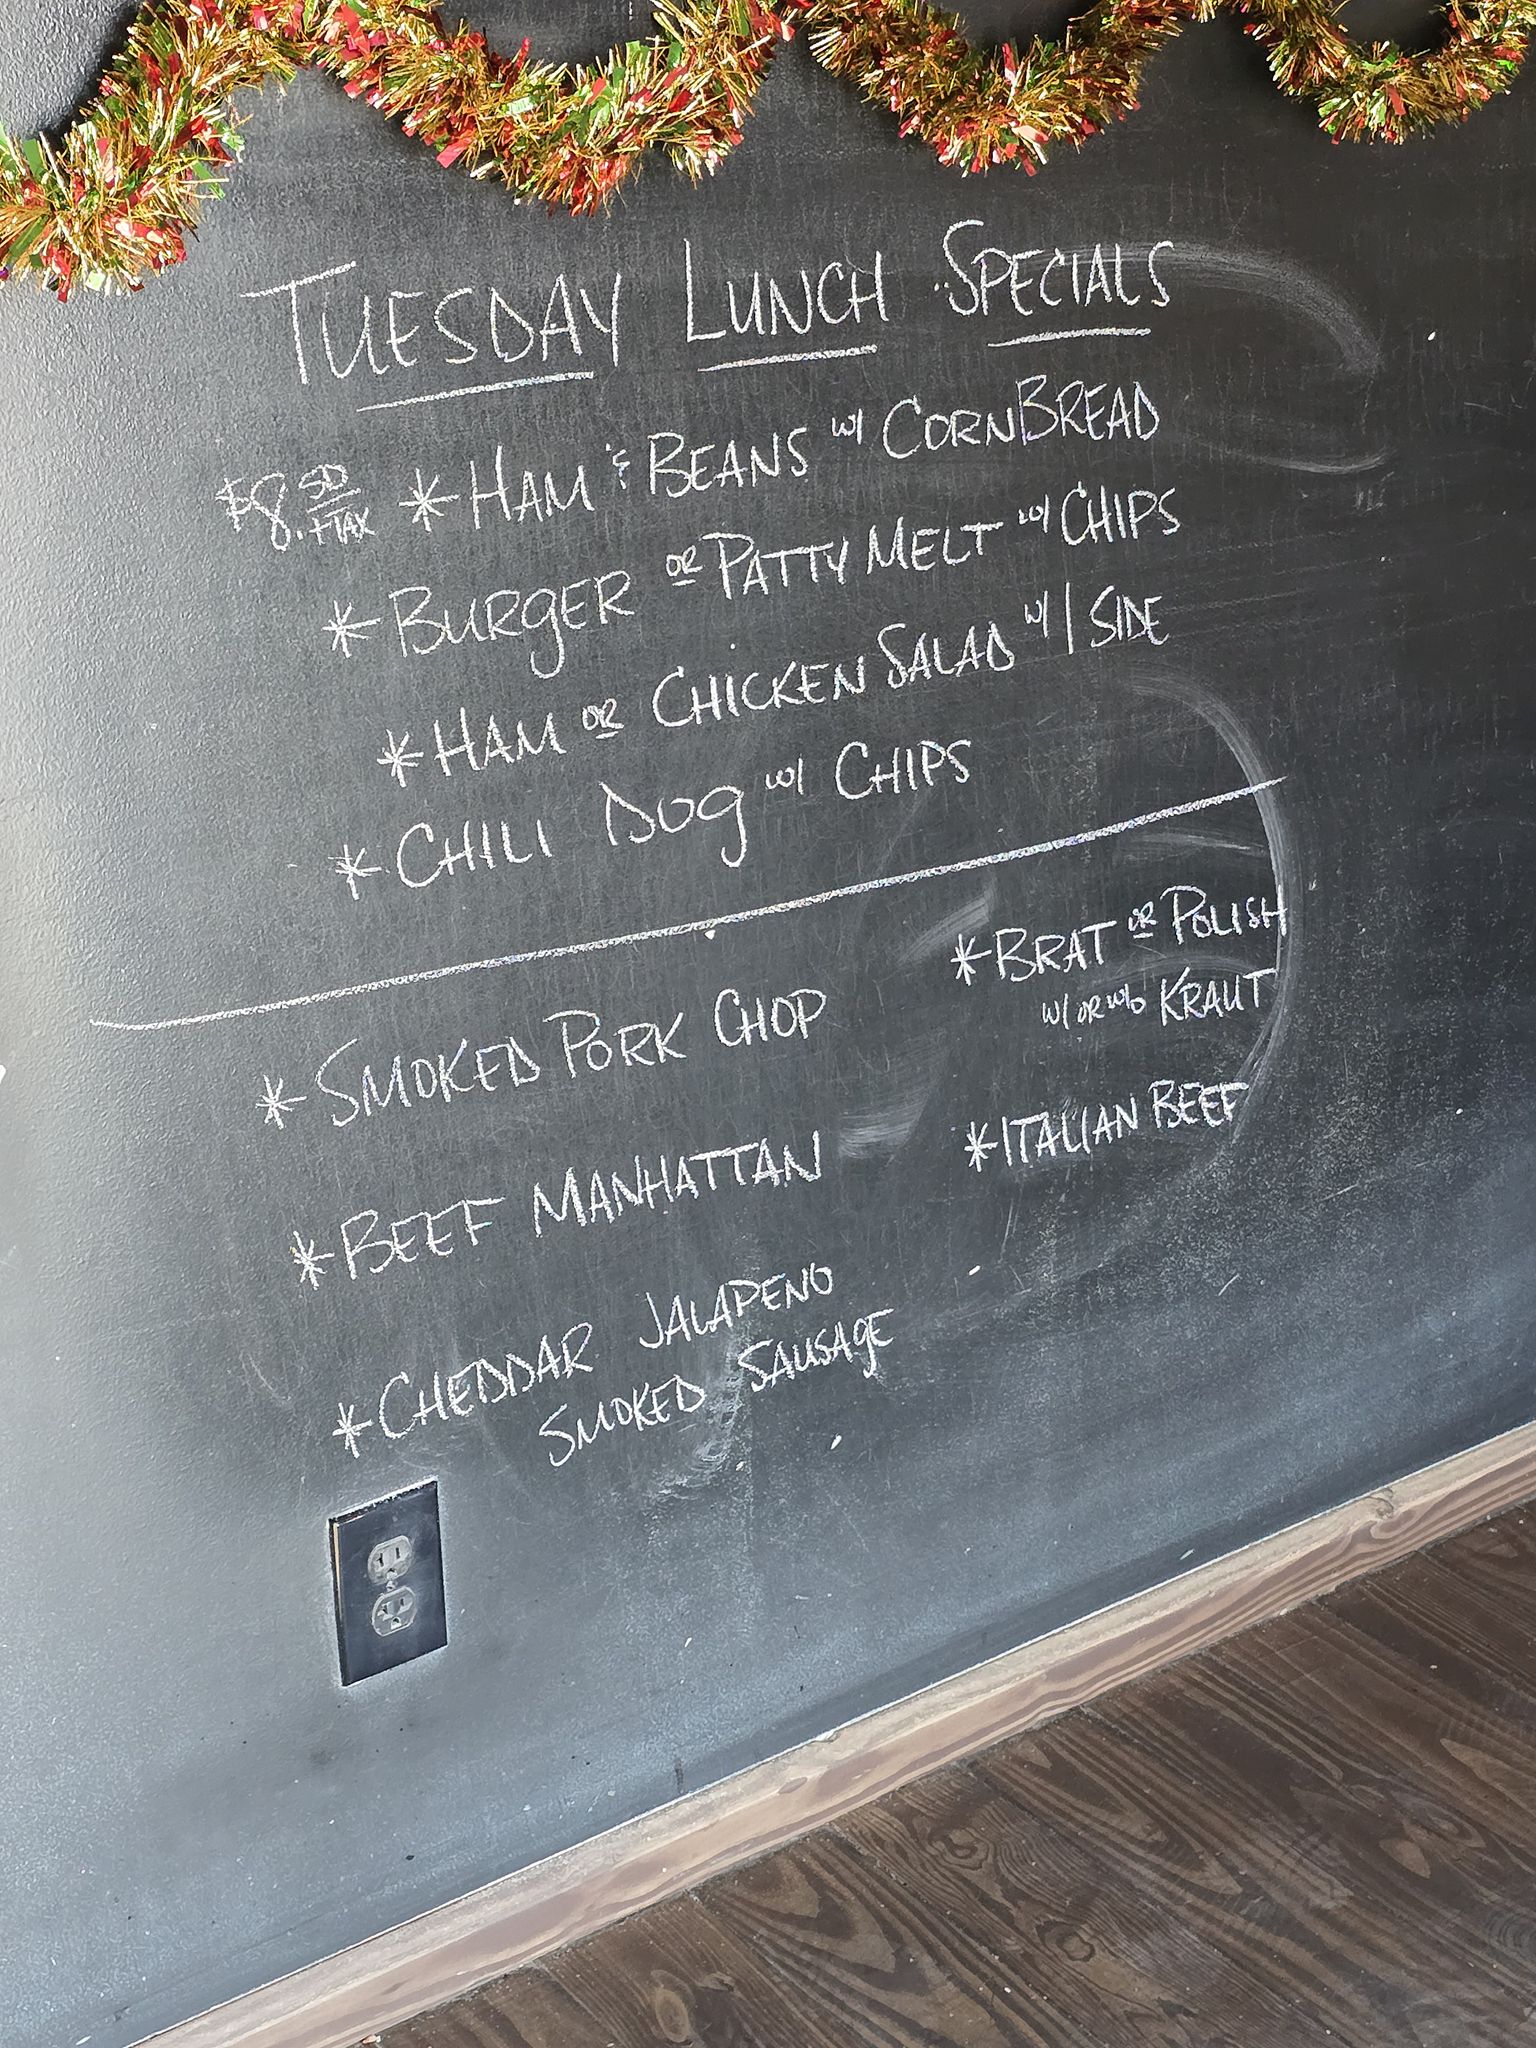 TUESDAY LUNCH SPECIALS
$8.50 +TAX * HAM & BEANS w/ CORNBREAD
* BURGER OR PATTY MELT w/ CHIPS
* HAM OR CHICKEN SALAD w/ 1 SIDE
* CHILI DOG w/ CHIPS
* SMOKED PORK CHOP
* BEEF MANHATTAN
* CHEDDAR JALAPENO
SMOKED SAUSAGE
* BRAT OR POLISH
w/ OR w/o KRAUT
* ITALIAN BEEF